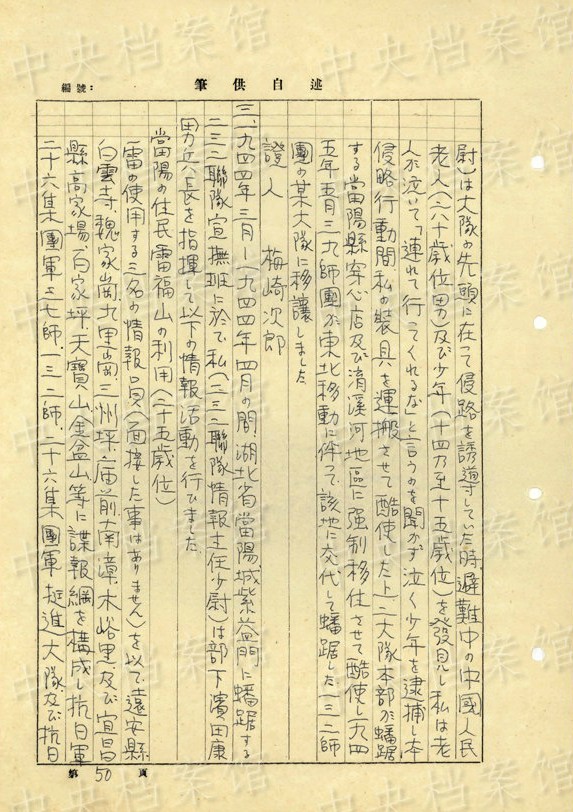 中央档案馆
編號：
筆供自述
尉）は大隊の先頭に在って侵路を誘導していた時、避難中の中國人民
老人（六十歳位男）及び少年（十四乃至十五歳位）を發見し私は老
人が泣いて「連れて行ってくれるな」と言うのを聞かず泣く少年を逮捕し本
侵略行動間、私の装具を運搬させて酷使した上、二大隊本部が蟠踞
する當陽縣穿心店及び淯溪河地區に强制移住させて酷使し一九四
五年五月三九師團が東北移動に伴って、該地に交代して蟠踞した一三二師
團の某大隊に移讓しました
證人　梅崎次郎
三、一九四四年三月ー一九四四年四月の間、湖北省當陽城紫蓋門に蟠踞する
二三二聯隊宣撫班に於て、私（二三二聯隊情報主任少尉）は部下濱田康
男兵長を指揮して以下の情報活動を行ひました
當陽の住民雷福山の利用（二十五歳位）
雷の使用する三名の情報員（面接した事はありません）を以て、遠安縣
白雲寺、魏家崗、九里崗、三州坪、庙前、南漳、木峪里、及び宜昌
縣高家場、百家坪、天寶山、金盆山等に諜報網を構成し抗日軍
二十六集團軍、七七師、一三二師、二十六集團軍挺進大隊、及び抗日
第50頁